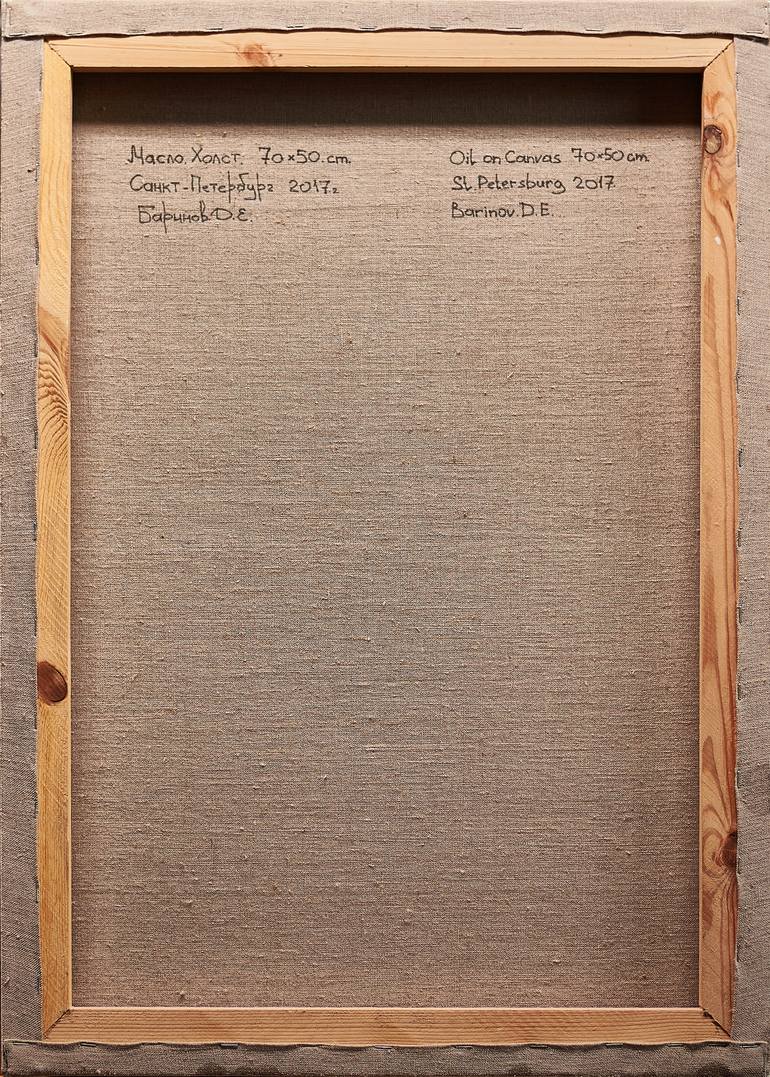 Масло. Холст. 70×50.cm.
Санкт-Петербург 2017г.
Баринов.Д.Е.
Oil on Canvas 70×50 cm.
St. Petersburg 2017
Barinov.D.E.